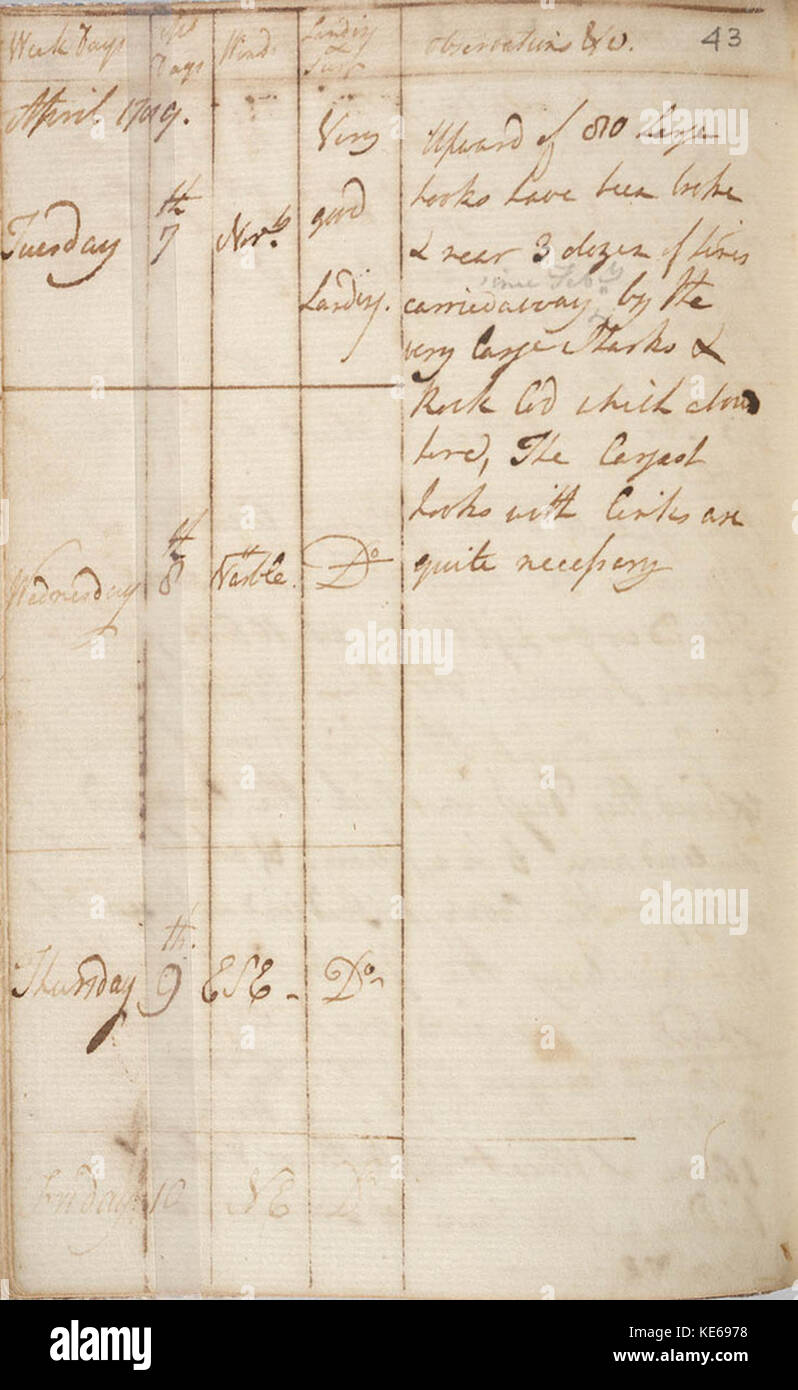 Week Days Days Winds Landg Surf Observations &c. 43
April 1789.
Tuesday 7th Norly Very good Landing.
Upward of 80 large
hooks have been broke
& near 3 dozen of lines
since Feby
carried away by the
very large Sharks &
Rock Cod which abound
here, The Largest
hooks with links are
quite necessary
Wednesday 8th Do
Thursday 9th. ESE - Do
Friday 10 NE Do
alamy
alamy
Image ID: KE6978
www.alamy.com